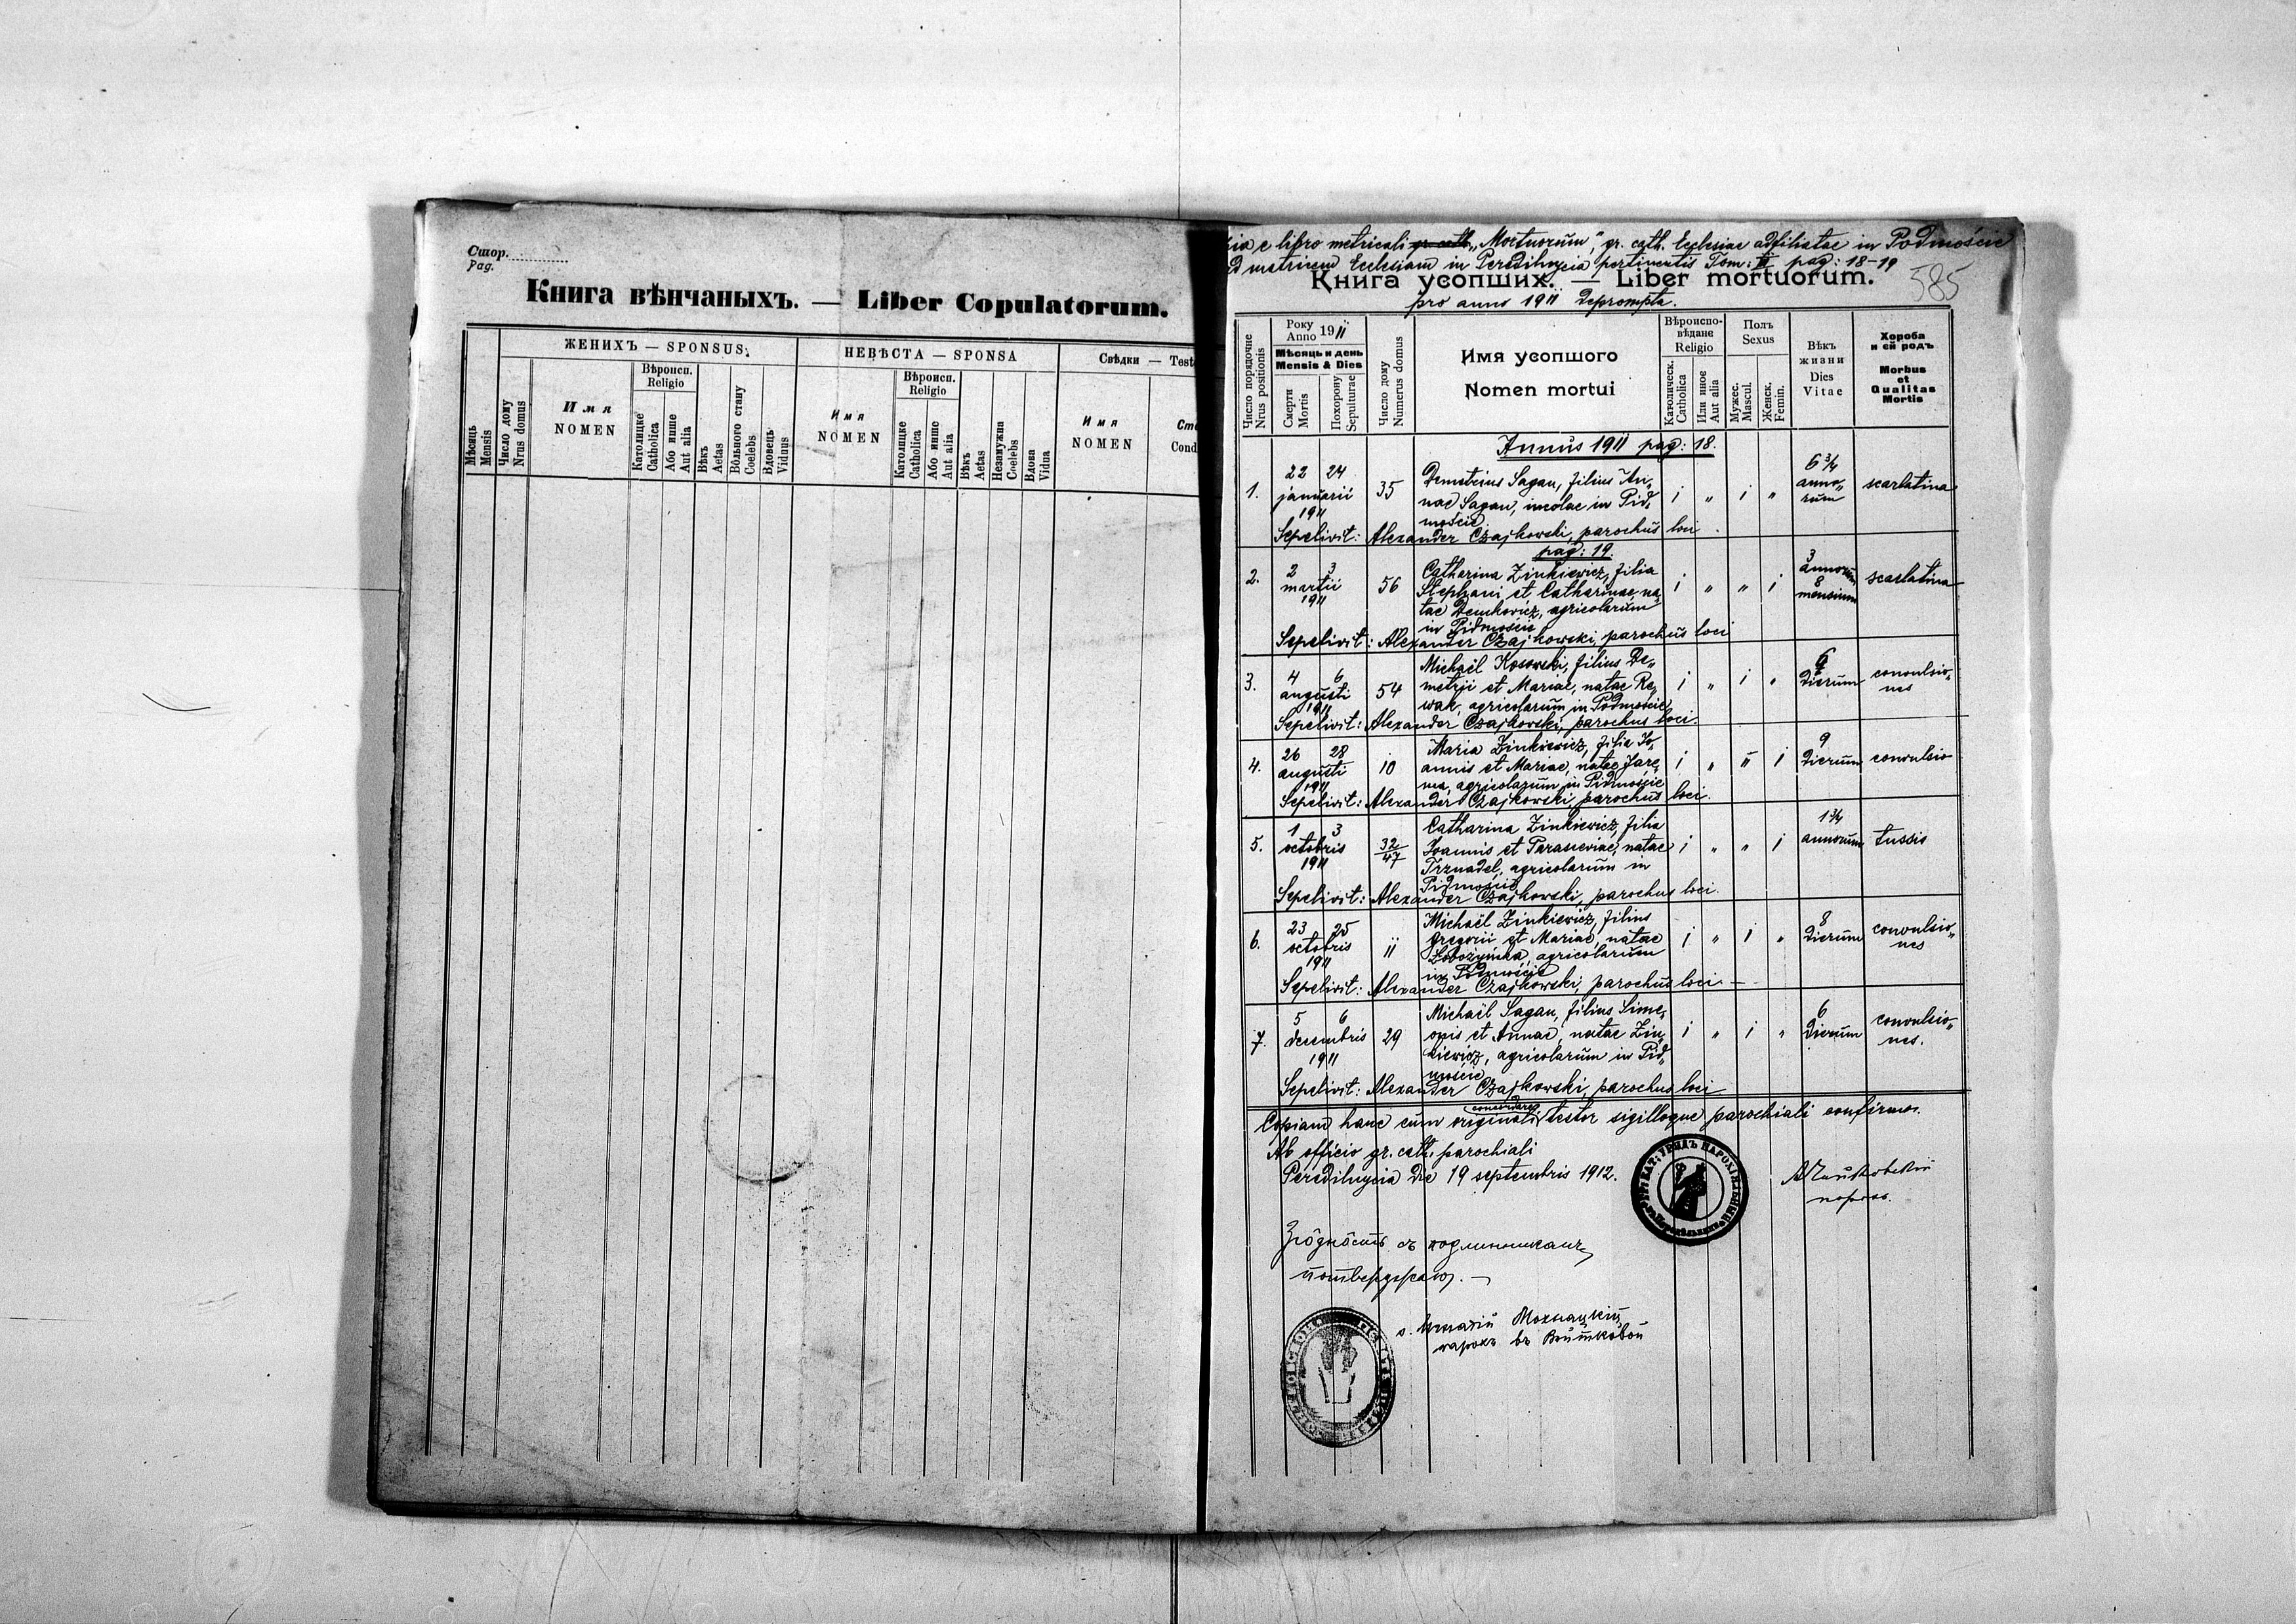 Стор.
Pag.
Книга вѣнчаныхъ. — Liber Copulatorum.
Мѣсяць
Mensis
Число дому
Nrus domus
ЖЕНИХЪ — SPONSUS.
Имя
NOMEN
Вѣроисп.
Religio
Католицке
Catholica
Або инше
Aut alia
Вѣкъ
Aetas
Вольного стану
Coelebs
Вдовець
Viduus
НЕВѢСТА — SPONSA
Имя
NOMEN
Вѣроисп.
Religio
Католицке
Catholica
Або инше
Aut alia
Вѣкъ
Aetas
Незамужна
Coelebs
Вдова
Vidua
Свѣдки — Test
Имя
NOMEN
Ст
Cond
e libro metricali gr. cath. „Mortuorum", gr. cath. Ecclesiae adfiliatae in Podmoście
ad matricem Ecclesiam in Peredilnycia pertinentis Tom: II pag: 18-19
585
Книга усопшихъ. — Liber mortuorum.
pro anno 1911 deprompta.
Число порядочне
Nrus positionis
Року
Anno 1911
Мѣсяць и день
Mensis & Dies
Смерти
Mortis
Похорону
Sepulturae
Число дому
Numerus domus
Имя усопшого
Nomen mortui
Вѣроиспо-
вѣдане
Religio
Католическ.
Catholica
Или иное
Aut alia
Полъ
Sexus
Мужес.
Mascul.
Женск.
Femin.
Вѣкъ
жизни
Dies
Vitae
Хороба
и єй родъ
Morbus
et
Qualitas
Mortis
Annus 1911 pag: 18.
1. 22 24 januarii 1911 35
Demetrius Sagan, filius An„
nae Sagan, incolae in Pid„
moście
i „ i „ 6 3/4 anno„ rum scarlatina
Sepelivit: Alexander Czajkowski, parochus loci.
pag: 19.
2. 2 3 martii 1911 56
Catharina Zinkiewicz, filia
Stephani et Catharinae, na„
tae Demkowicz, agricolarum
in Pidmoście
i „ „ i 3 annorum 8 mensium scarlatina
Sepelivit: Alexander Czajkowski, parochus loci
3. 4 6 augusti 1911 54
Michaël Kosowski, filius De„
metrii et Mariae, natae Re„
wak, agricolarum in Podmoście
i „ i „ 6 dierum convulsio„ nes
Sepelivit: Alexander Czajkowski, parochus loci.
4. 26 28 augusti 1911 10
Maria Zinkiewicz, filia Jo„
annis et Mariae, natae Jare„
ma, agricolarum in Pidmoście
i „ „ i 9 dierum convulsio
Sepelivit: Alexander Czajkowski, parochus loci.
5. 1 3 octobris 1911 32/47
Catharina Zinkiewicz, filia
Joannis et Parasceviae, natae
Trznadel, agricolarum in
Pidmoście
i „ „ i 1 3/4 annorum tussis
Sepelivit: Alexander Czajkowski, parochus loci.
6. 23 25 octobris 1911 11
Michaël Zinkiewicz, filius
Gregorii et Mariae, natae
agricolarum
in Podmoście
i „ i „ 8 dierum convulsio„ nes
Sepelivit: Alexander Czajkowski, parochus loci. —
7. 5 6 decembris 1911 29
Michaël Sagan, filius Sime„
onis et Annae, natae Zin„
kiewicz, agricolarum in Pid„
moście
i „ i „ 6 dierum convulsio„ nes.
Sepelivit: Alexander Czajkowski, parochus loci
Copiam hanc cum originali concordare testor sigilloque parochiali confirmo.
Ab officio gr. cath. parochiali
Peredilnycia die 19 septembris 1912.
АЧайковскій
парох.
Зго̂дно̂сть съ подлинникомъ
потверджаю. —
о. Игнатій Мохнацкій
парохъ въ Войтковой